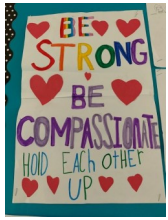 BE
STRONG
BE
COMPASSIONATE
HOLD EACh OTHER
UP